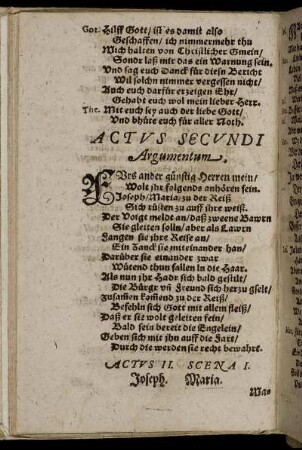 Got. Hilff Gott/ ist es damit also
Geschaffen/ ich nimmermehr thu
Mich halten von Christlicher Gmein/
Sondr laß mir das ein Warnung sein.
Vnd sag euch Danck für diesn Bericht
Wil solchn nimmer vergessen nicht/
Auch euch darfür erzeigen Ehr/
Gehabt euch wol mein lieber Herr.
The. Mit euch sey auch der liebe Gott/
Vnd bhüte euch für aller Noth.
ACTVS SECVNDI
Argumentum.
FVrs ander günstig Herren mein/
Wolt ihr folgends anhören fein.
Joseph/ Maria/ zu der Reiß
Sich rüsten zu auff ihre weiß.
Der Voigt meldt an/ daß zweene Bawrn
Sie gleiten solln/ aber als Lawrn
Fangen sie ihre Reise an/
Ein Zanck sie miteinander han/
Darüber sie einander zwar
Wütend thun fallen in die Haar.
Als nun ihr Hadr sich bald gestilt/
Die Bürgr vñ Freund sich herzu gselt/
Zusamen kom̃end zu der Reiß/
Befehln sich Gott mit allem fleiß/
Daß er sie wolt geleiten fein/
Bald sein bereit die Engelein/
Geben sich mit ihn auff die Fart/
Durch die werden sie recht bewahrt.
ACTVS II. SCENA I.
Joseph. Maria.
Was